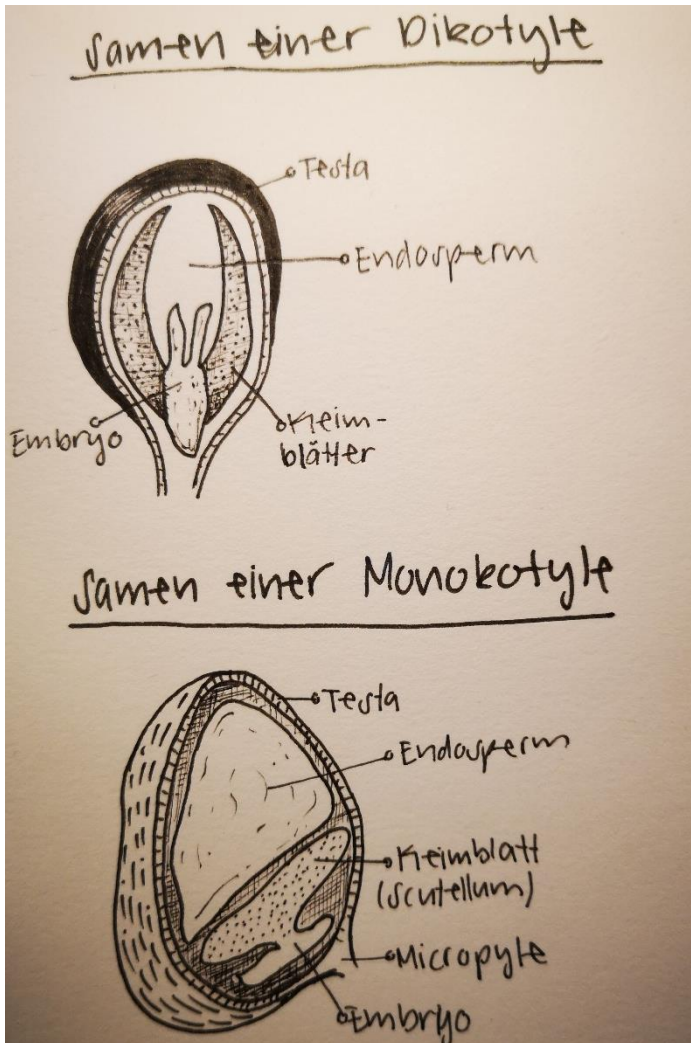 Samen einer Dikotyle
Testa
Endosperm
Embryo
Keim-
blätter
Samen einer Monokotyle
Testa
Endosperm
Keimblatt
(Scutellum)
Micropyle
Embryo